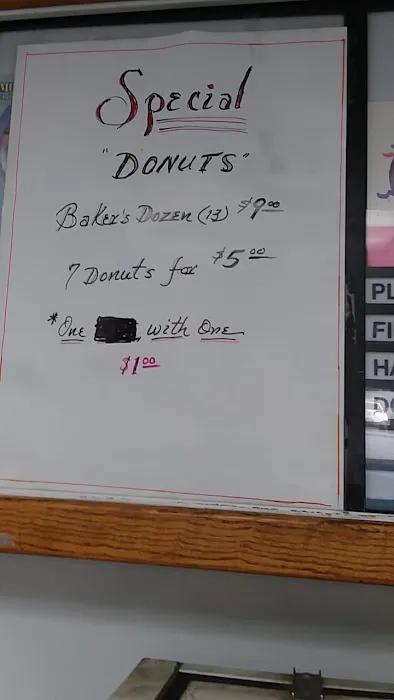 Special
"DONUTS"
Baker's Dozen (13) $9.00
7 Donuts for $5.00
*One with One
$1.00
PL
FI
HA
DO